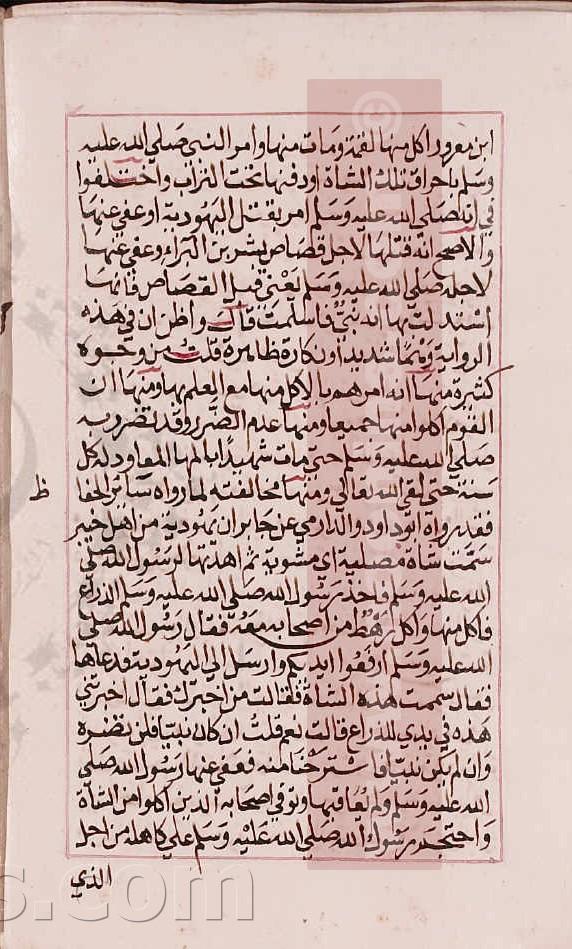 ابن معرور اكل منها لقمة ومات منها وامر النبي صلي الله عليه
وسلم باحراق تلك الشاة او دفنها تحت التراب واختلفوا
في انه صلي الله عليه وسلم امر بقتل اليهودية او عفي عنها
والاصح انه قتلها لاجل قصاص بشر بن البراء وعفي عنها
لاجله صلي الله عليه وسلم يعني قبل القصاص فانها
استدلت بها انه نبي فاسلمت قال واظن ان في هذه
الرواية وهما شديدا ونكارة ظاهرة قلت من وجوه
كثيرة منها انه امرهم بالاكل منها مع العلم بها ومنها ان
القوم اكلوا منها جميعا ومنها عدم الضرر وقد تضرر به
صلي الله عليه وسلم حتي مات شهيدا بالمها المعاود له كل
سنة حتي لقي الله تعالي ومنها مخالفته لما رواه سائر الحفا
ظ
فقد رواه ابو داود والدارمي عن جابر ان يهودية من اهل خيبر
سمت شاة مصلية اي مشوية ثم اهدتها لرسول الله صلي
الله عليه وسلم فاخذ رسول الله صلي الله عليه وسلم الذراع
فاكل منها واكل رهط من اصحابه معه فقال رسول الله صلي
الله عليه وسلم ارفعوا ايديكم وارسل الي اليهودية فدعاها
فقال سممت هذه الشاة فقالت من اخبرك فقال اخبرتني
هذه في يدي للذراع قالت نعم قلت ان كان نبيا فلن تضره
وان لم يكن نبيا فاسترحنا منه فعفي عنها رسول الله صلي
الله عليه وسلم ولم يعاقبها وتوفي اصحابه الذين اكلوا من الشاة
واحتجم رسول الله صلي الله عليه وسلم علي كاهله من اجل
الذي
s.com